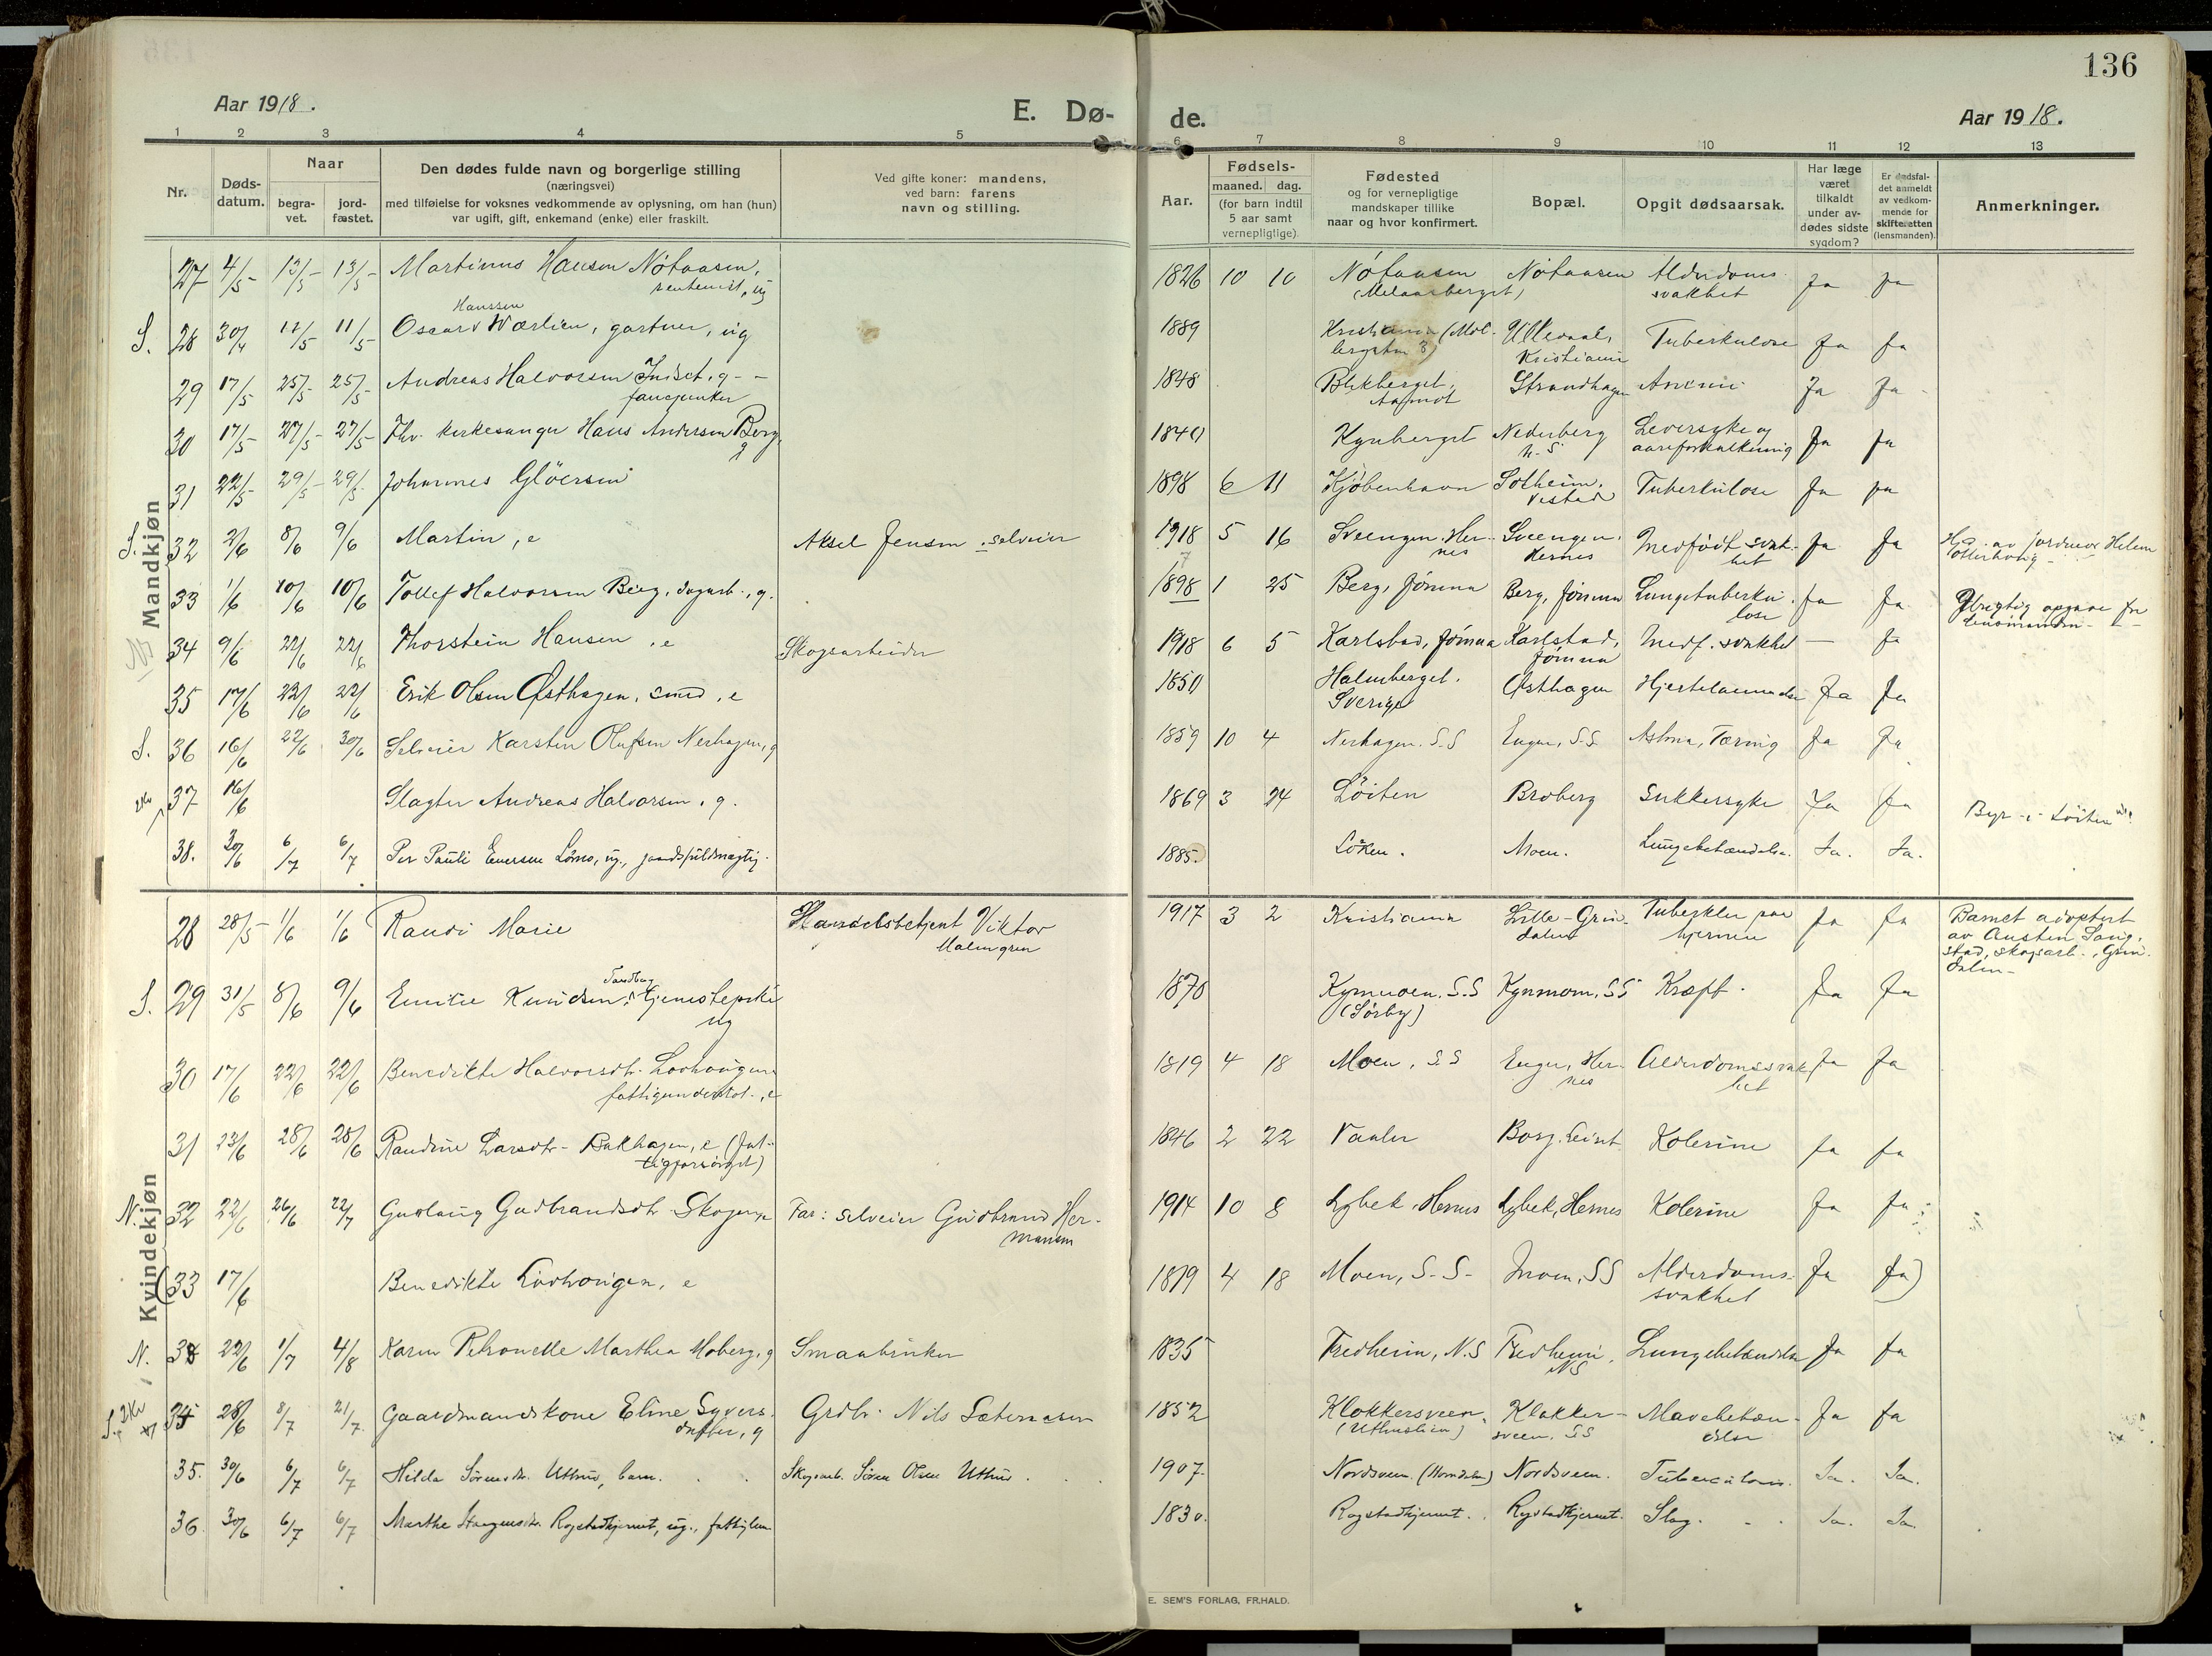 136
Aar 1918.
E. Dø-
de.
Aar 1918.
1 2 3 4 5 6 7 8 9 10 11 12 13
Nr.
Døds-
datum.
Naar
begra-
vet.
jord-
fæstet.
Den dødes fulde navn og borgerlige stilling
(næringsvei)
med tilføielse for voksnes vedkommende av oplysning, om han (hun)
var ugift, gift, enkemand (enke) eller fraskilt.
Ved gifte koner: mandens,
ved barn: farens
navn og stilling.
Aar.
Fødsels-
maaned. dag.
(for barn indtil
5 aar samt
vernepligtige)
Fødested
og for vernepligtige
mandskaper tillike
naar og hvor konfirmert.
Bopæl.
Opgit dødsaarsak.
Har læge
været
tilkaldt
under av-
dødes sidste
sygdom?
Er dødsfal-
det anmeldt
av vedkom-
mende for
skifteretten
(lensmanden).
Anmerkninger.
Mandkjøn
27 4/5 13/5 13/5 Martinus Hansen Nötaasen, 1826 10 10 Nötaasen Nötaasen Alderdoms- Ja Ja
ug
svakhet
Hanssen
S. 28 30/4 11/5 11/5 Oscar Wærlien, gartner, ug 1889 Ullevaal, Tuberkulose Ja Ja
Kristiania
29 17/5 25/5 25/5 Andreas Halvorsen Indset, g 1848 Strandhagen Anæmi Ja Ja
fanejunker
30 17/5 27/5 27/5 Fhv. kirkesanger Hans Andersen Berg 1840 Kynberget Nederberg Leversyke og Ja Ja
g
aareforkalkning
31 22/5 29/5 29/5 Johannes Glöersen 1898 6 11 Kjöbenhavn Solheim, Tuberkulose Ja Ja
S. 32 2/6 8/6 9/6 Martin, e Aksel Jensen, selveier 1918 5 16 Sveengen, Her- Sveengen, Medfödt svak- Ja Ja
nes Hernes het
33 1/6 10/6 10/6 Tollef Halvorsen Berg, dagarb., g. 1898 1 25 Berg, Jömna Berg, Jömna Lungetuberku- Ja Ja
lose
34 9/6 22/6 22/6 Thorstein Hansen, e Skogsarbeider 1918 6 5 Karlstad, Jömna Karlstad, Medf. svakhet — Ja
Jömna
35 17/6 22/6 22/6 Erik Olsen Østhagen, smed, e 1850 Halmberget, Østhagen Hjertelammelse Ja Ja
Sverige
S. 36 16/6 22/6 30/6 Selveier Karsten Olufsen Nerhagen, g 1859 10 4 Nerhagen, S.S Enger, S.S. Astma, Tæring Ja Ja
37 16/6 Slagter Andreas Halvorsen, g. 1869 3 24 Löiten Broberg Sukkersyke Ja Ja
38. 30/6 6/7 6/7 Per Pauli Lömo, ug., 1885. Löken. Moen. Lungebetændelse. Ja. Ja.
Kvindekjøn
28 28/5 1/6 1/6 Randi Marie Handelsbetjent Viktor 1917 3 2 Kristiania Lille-Grin- Tuberkler paa Ja Ja Barnet adoptert
Malmgren dalen hjernen av Austen
stad, skogsarb., Grin-
dalen
Tandberg
S. 29 31/5 8/6 9/6 Emilie Knudsen, tjenestepike 1870 Kynmoen, S.S Kynmoen, SS Kræft. Ja Ja
ug (Sörby)
30 17/6 22/6 22/6 Benedikte Halvorsdtr. Lövhaugen 1819 4 18 Moen, S.S Enger, Her- Alderdomssvak- Ja Ja
fattigunderst., e nes het
31 23/6 28/6 28/6 Randine Larsdtr. Bakhagen, e (fat- 1846 2 22 Vaaler Kolerine Ja Ja
tigforsörget)
N. 32 22/6 26/6 22/7 Gudlaug Gudbrandsdtr. Far: selveier Gudbrand Her- 1914 10 8 Lybek, Hernes Lybek, Hernes Kolerine Ja Ja
mansen
(33 17/6 Benedikte Lövhaugen, e 1819 4 18 Moen, S.S. Moen, SS Alderdoms- Ja Ja)
svakhet
N. 22/6 1/7 4/8 Karen Petronelle Marthea Moberg, g Smaabruker 1835 Fredheim, N.S Fredheim, Lungebetændelse Ja Ja
NS
S. 28/6 8/7 21/7 Gaardmandskone Eline Syvers- Grdbr. Nils Sæteraasen 1852 Klokkersveen, Klokker- Mavebetæn- Ja Ja
datter, g sveen, SS delse
35. 30/6 6/7 6/7 Hilda Sörensdtr. Uthus, barn. Skogsarb. Sören Olsen Uthus. 1907. Nordsveen. Nordsveen. Tuberculose. Ja. Ja.
36. 30/6 6/7 6/7 Marthe Rogstadkjernet, ug., 1830. Rogstadkjernet. Rogstadkjernet. Slag. Ja. Ja.
E. SEM'S FORLAG, FR.HALD.